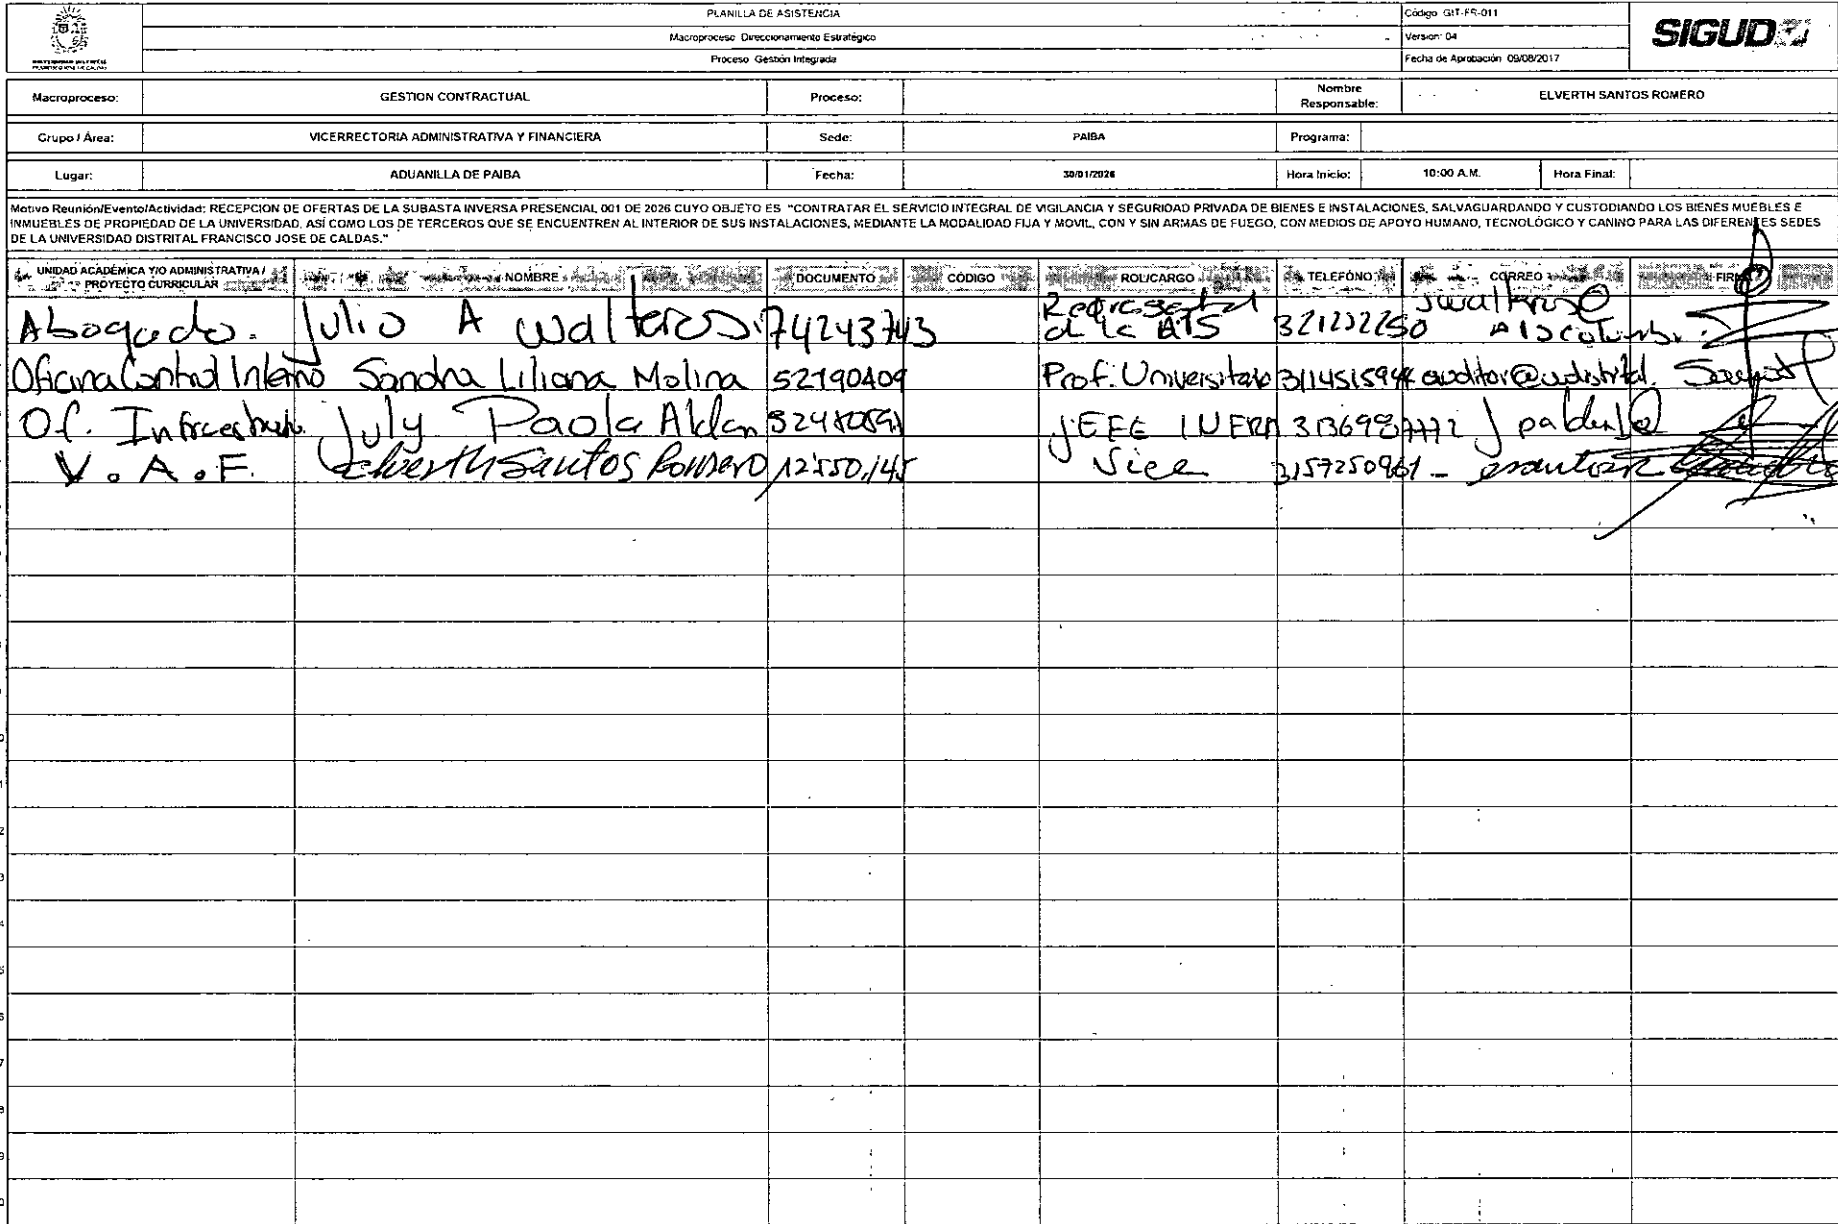 PLANILLA DE ASISTENCIA
Código: GIT-FR-011
Macroproceso: Direccionamiento Estratégico
Versión: 04
Proceso: Gestión Integrada
Fecha de Aprobación: 09/08/2017
SIGUD
Macroproceso: GESTION CONTRACTUAL Proceso: Nombre Responsable: ELVERTH SANTOS ROMERO
Grupo / Área: VICERRECTORIA ADMINISTRATIVA Y FINANCIERA Sede: PAIBA Programa:
Lugar: ADUANILLA DE PAIBA Fecha: 30/01/2026 Hora Inicio: 10:00 A.M. Hora Final:
Motivo Reunión/Evento/Actividad: RECEPCION DE OFERTAS DE LA SUBASTA INVERSA PRESENCIAL 001 DE 2026 CUYO OBJETO ES "CONTRATAR EL SERVICIO INTEGRAL DE VIGILANCIA Y SEGURIDAD PRIVADA DE BIENES E INSTALACIONES, SALVAGUARDANDO Y CUSTODIANDO LOS BIENES MUEBLES E
INMUEBLES DE PROPIEDAD DE LA UNIVERSIDAD, ASÍ COMO LOS DE TERCEROS QUE SE ENCUENTREN AL INTERIOR DE SUS INSTALACIONES, MEDIANTE LA MODALIDAD FIJA Y MOVIL, CON Y SIN ARMAS DE FUEGO, CON MEDIOS DE APOYO HUMANO, TECNOLÓGICO Y CANINO PARA LAS DIFERENTES SEDES
DE LA UNIVERSIDAD DISTRITAL FRANCISCO JOSE DE CALDAS."
UNIDAD ACADÉMICA Y/O ADMINISTRATIVA / PROYECTO CURRICULAR NOMBRE DOCUMENTO CÓDIGO ROL/CARGO TELEFÓNO CORREO
Abogado. Julio A Walteros 74243743 de la ATS
Oficina Control Interno Sandra Liliana Molina 52190409 Prof. Universitario auditor@udistrital.
Of. July Paola JEFE INFRA
V.A.F. Elverth Santos Romero 12550,145 Vice